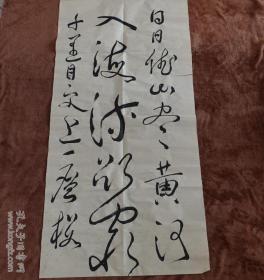 白日依山尽黄河
入海流欲窮
千里目更上一層樓
孔夫子旧书网